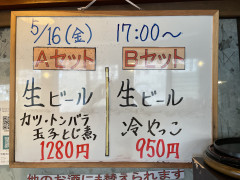 5/16(金) 17:00〜
Aセット
生ビール
カツ・トンバラ
玉子とじ煮
1280円
Bセット
生ビール
冷やっこ
950円
他のお酒にも替えられます